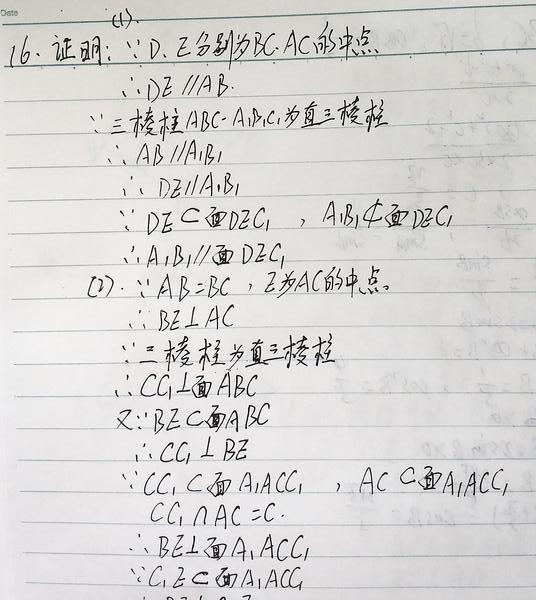 Date
(1).
16. 证明: ∵ D、E分别为BC、AC的中点
∴ DE∥AB.
∵ 三棱柱ABC-A₁B₁C₁为直三棱柱
∴ AB∥A₁B₁
∴ DE∥A₁B₁
∵ DE⊂面DEC₁ , A₁B₁⊄面DEC₁
∴ A₁B₁∥面DEC₁
(2). ∵ AB=BC , E为AC的中点.
∴ BE⊥AC
∵ 三棱柱为直三棱柱
∴ CC₁⊥面ABC
又∵ BE⊂面ABC
∴ CC₁⊥BE
∵ CC₁⊂面A₁ACC₁ , AC⊂面A₁ACC₁
CC₁∩AC=C.
∴ BE⊥面A₁ACC₁
∵ C₁E⊂面A₁ACC₁